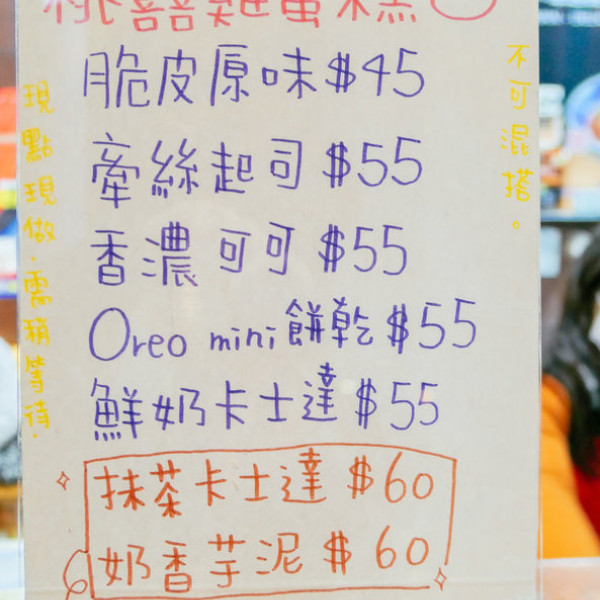 桃囍雞蛋糕
脆皮原味$45
牽絲起司$55
香濃可可$55
Oreo mini餅乾$55
鮮奶卡士達$55
抹茶卡士達$60
奶香芋泥$60
現點現做.需稍等待.
不可混搭。